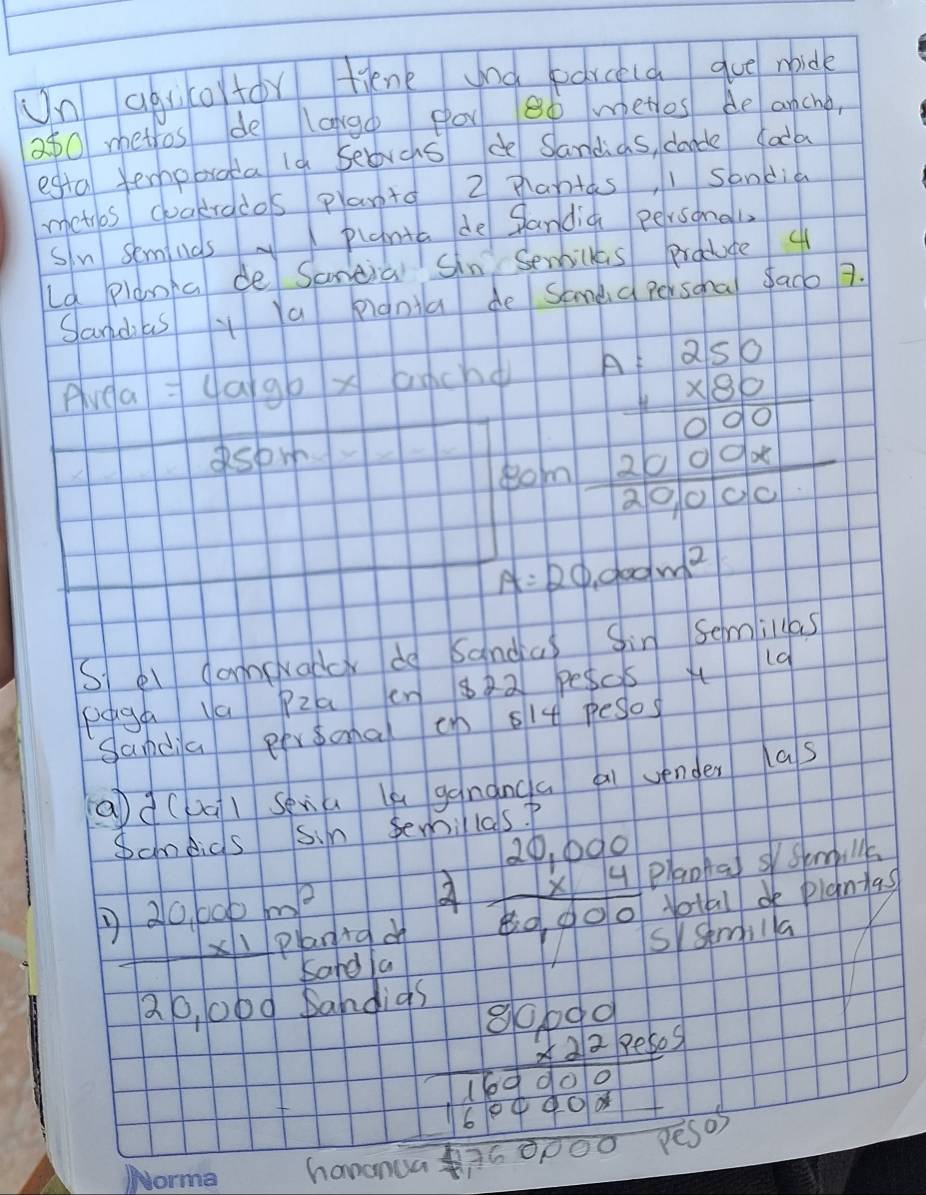 Un agricoltor tiene una parcela que mide
250 metros de largo por 80 metros de ancho,
esta temporada la de Sandias, donde Cada
metros cuadrados planto 2 plantas, 1 sandia
Sin semillas y 1 planta de Sandia personal.
La planta de Sandia Sin Semillas produce 4
Sandias y la planta de Sandia personal Saco 7.
Area = Largo x ancho
A: 250
x80
000
2000x
20,000
250m
80m
A=20,000m²
Si el comprador de Sandias Sin Semillas
paga la Pza en $22 pesos y la
Sandia personal en $14 pesos
a) ¿Cual seria la ganancia al vender las
Sandias Sin Semillas?
1) 20,000 m²
x1 planta de
Sandia
20,000 Sandias
2 20,000
x 4 plantas s/ Semilla
80,000 total de plantas
s/Semilla
80,000
x22 pesos
160000
160000x
1,760,000 pesos
Norma